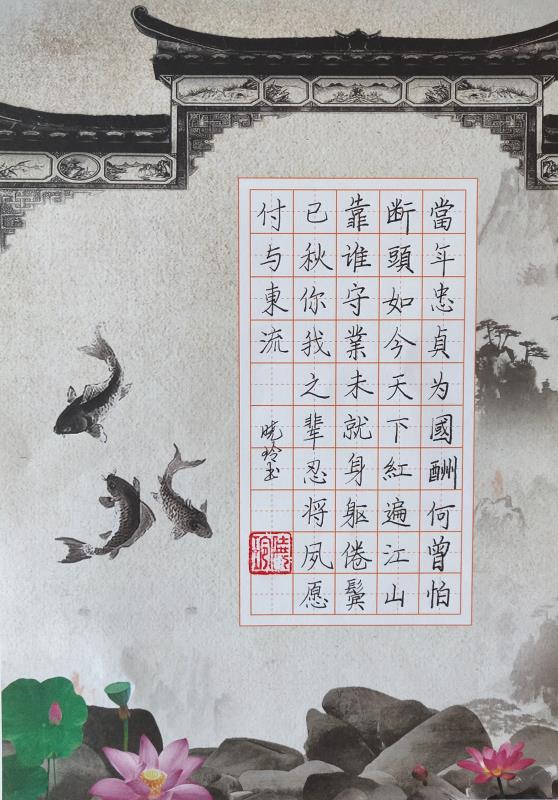 當年忠貞为國酬何曾怕
断頭如今天下紅遍江山
靠谁守業未就身躯倦鬓
已秋你我之輩忍将夙愿
付与東流
晓玲